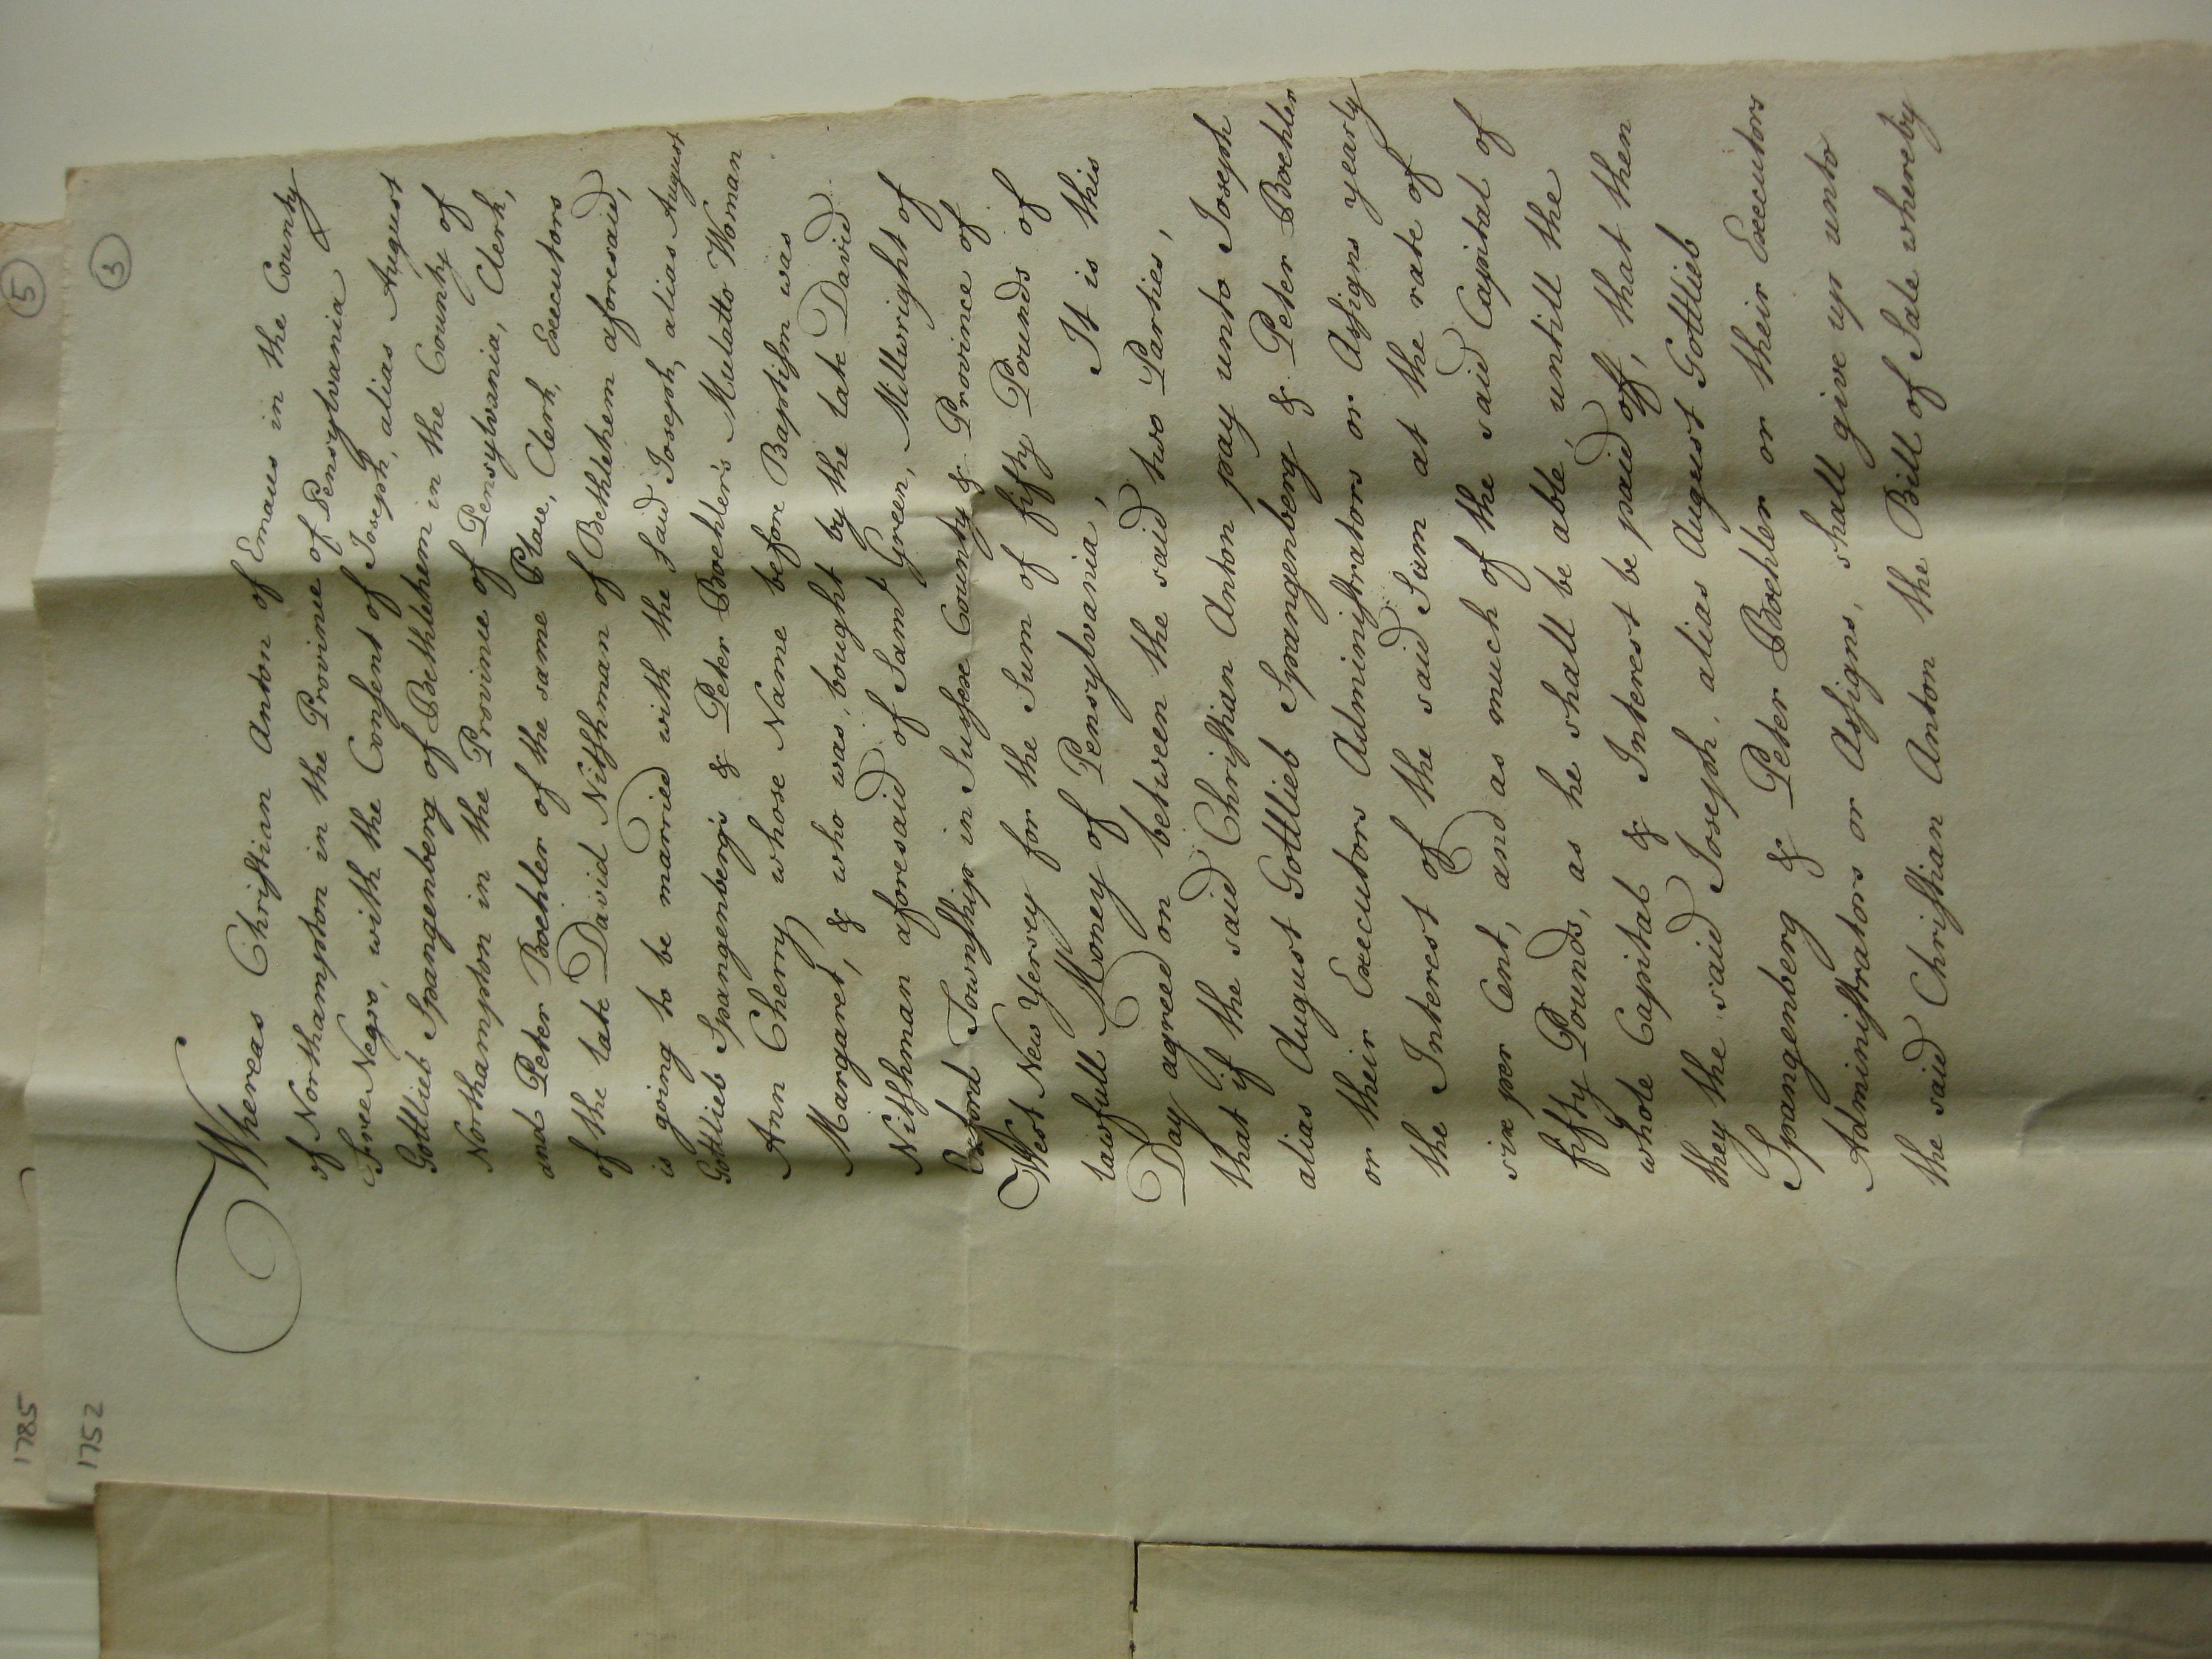 5
1785
3
1752
Whereas Christian Anton of Emaus in the County
of Northampton in the Province of Pensylvania
Free Negro, with the Consent of Joseph, alias August
Gottlieb Spangenberg of Bethlehem in the County of
Northampton in the Province of Pensylvania, Clerk,
and Peter Boehler of the same Place, Clerk, Executors
of the late David Nitschman of Bethlehem aforesaid,
is going to be married with the said Joseph, alias August
Gottlieb Spangenberg's & Peter Boehler's Mulatto Woman
Ann Cherry whose Name before Baptism was
Margaret, & who was, bought by the late David
Nitschman aforesaid of Saml Green, Millwright of
Oxford Township in Sussex County & Province of
West New Yersey for the Sum of fifty Pounds of
lawfull Money of Pensylvania, It is this
Day agreed on between the said two Parties,
that if the said Christian Anton pay unto Joseph
alias August Gottlieb Spangenberg & Peter Boehler
or their Executors Administrators or Assigns yearly
the Interest of the said Sum at the rate of
six per Cent, and as much of the said Capital of
fifty Pounds, as he shall be able, untill the
whole Capital & Interest be paid off, that then
they the said Joseph, alias August Gottlieb
Spangenberg & Peter Boehler or their Executors
Administrators or Assigns, shall give up unto
the said Christian Anton the Bill of Sale whereby